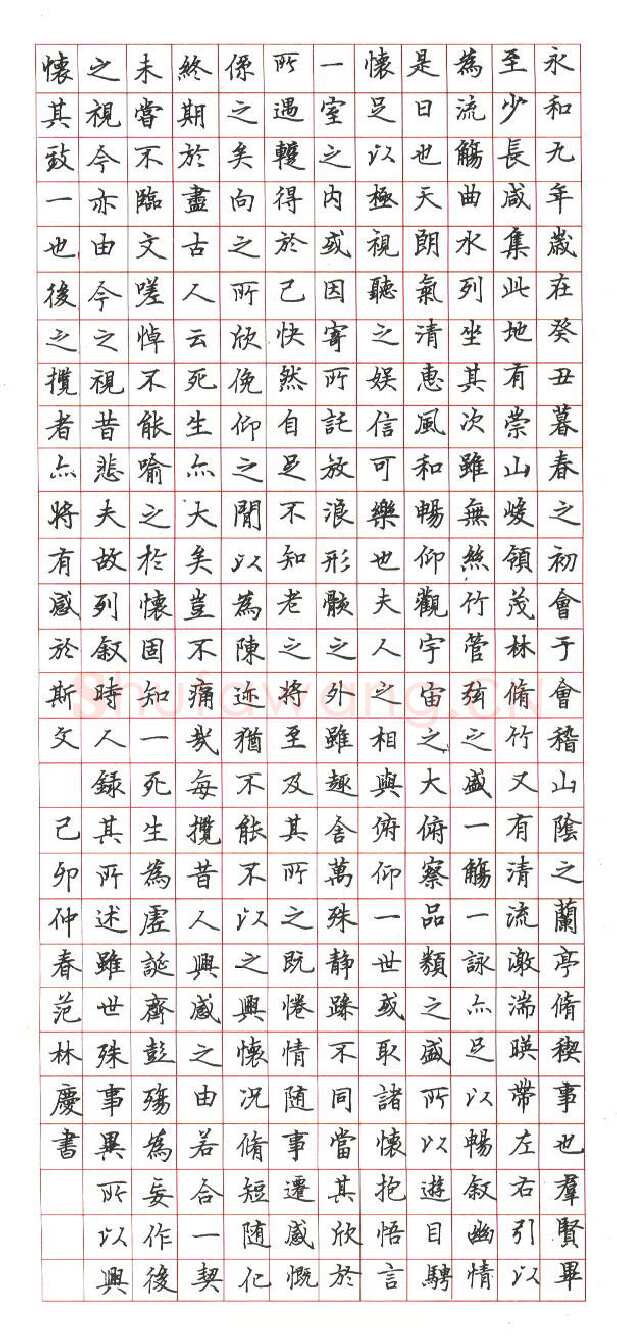 永和九年歲在癸丑暮春之初會于會稽山陰之蘭亭脩稧事也羣賢畢
至少長咸集此地有崇山峻領茂林脩竹又有清流激湍暎帶左右引以
為流觴曲水列坐其次雖無絲竹管弦之盛一觴一詠亦足以暢敘幽情
是日也天朗氣清惠風和暢仰觀宇宙之大俯察品類之盛所以遊目騁
懷足以極視聽之娛信可樂也夫人之相與俯仰一世或取諸懷抱悟言
一室之内或因寄所託放浪形骸之外雖趣舍萬殊静躁不同當其欣於
所遇蹔得於己快然自足不知老之將至及其所之既惓情随事遷感慨
係之矣向之所欣俛仰之閒以為陳迹猶不能不以之興懷况脩短随化
終期於盡古人云死生亦大矣豈不痛哉每攬昔人興感之由若合一契
未嘗不臨文嗟悼不能喻之於懷固知一死生為虚誕齊彭殤為妄作後
之視今亦由今之視昔悲夫故列敘時人錄其所述雖世殊事異所以興
懷其致一也後之攬者亦將有感於斯文 己卯仲春范林慶書
Shufawang.cn